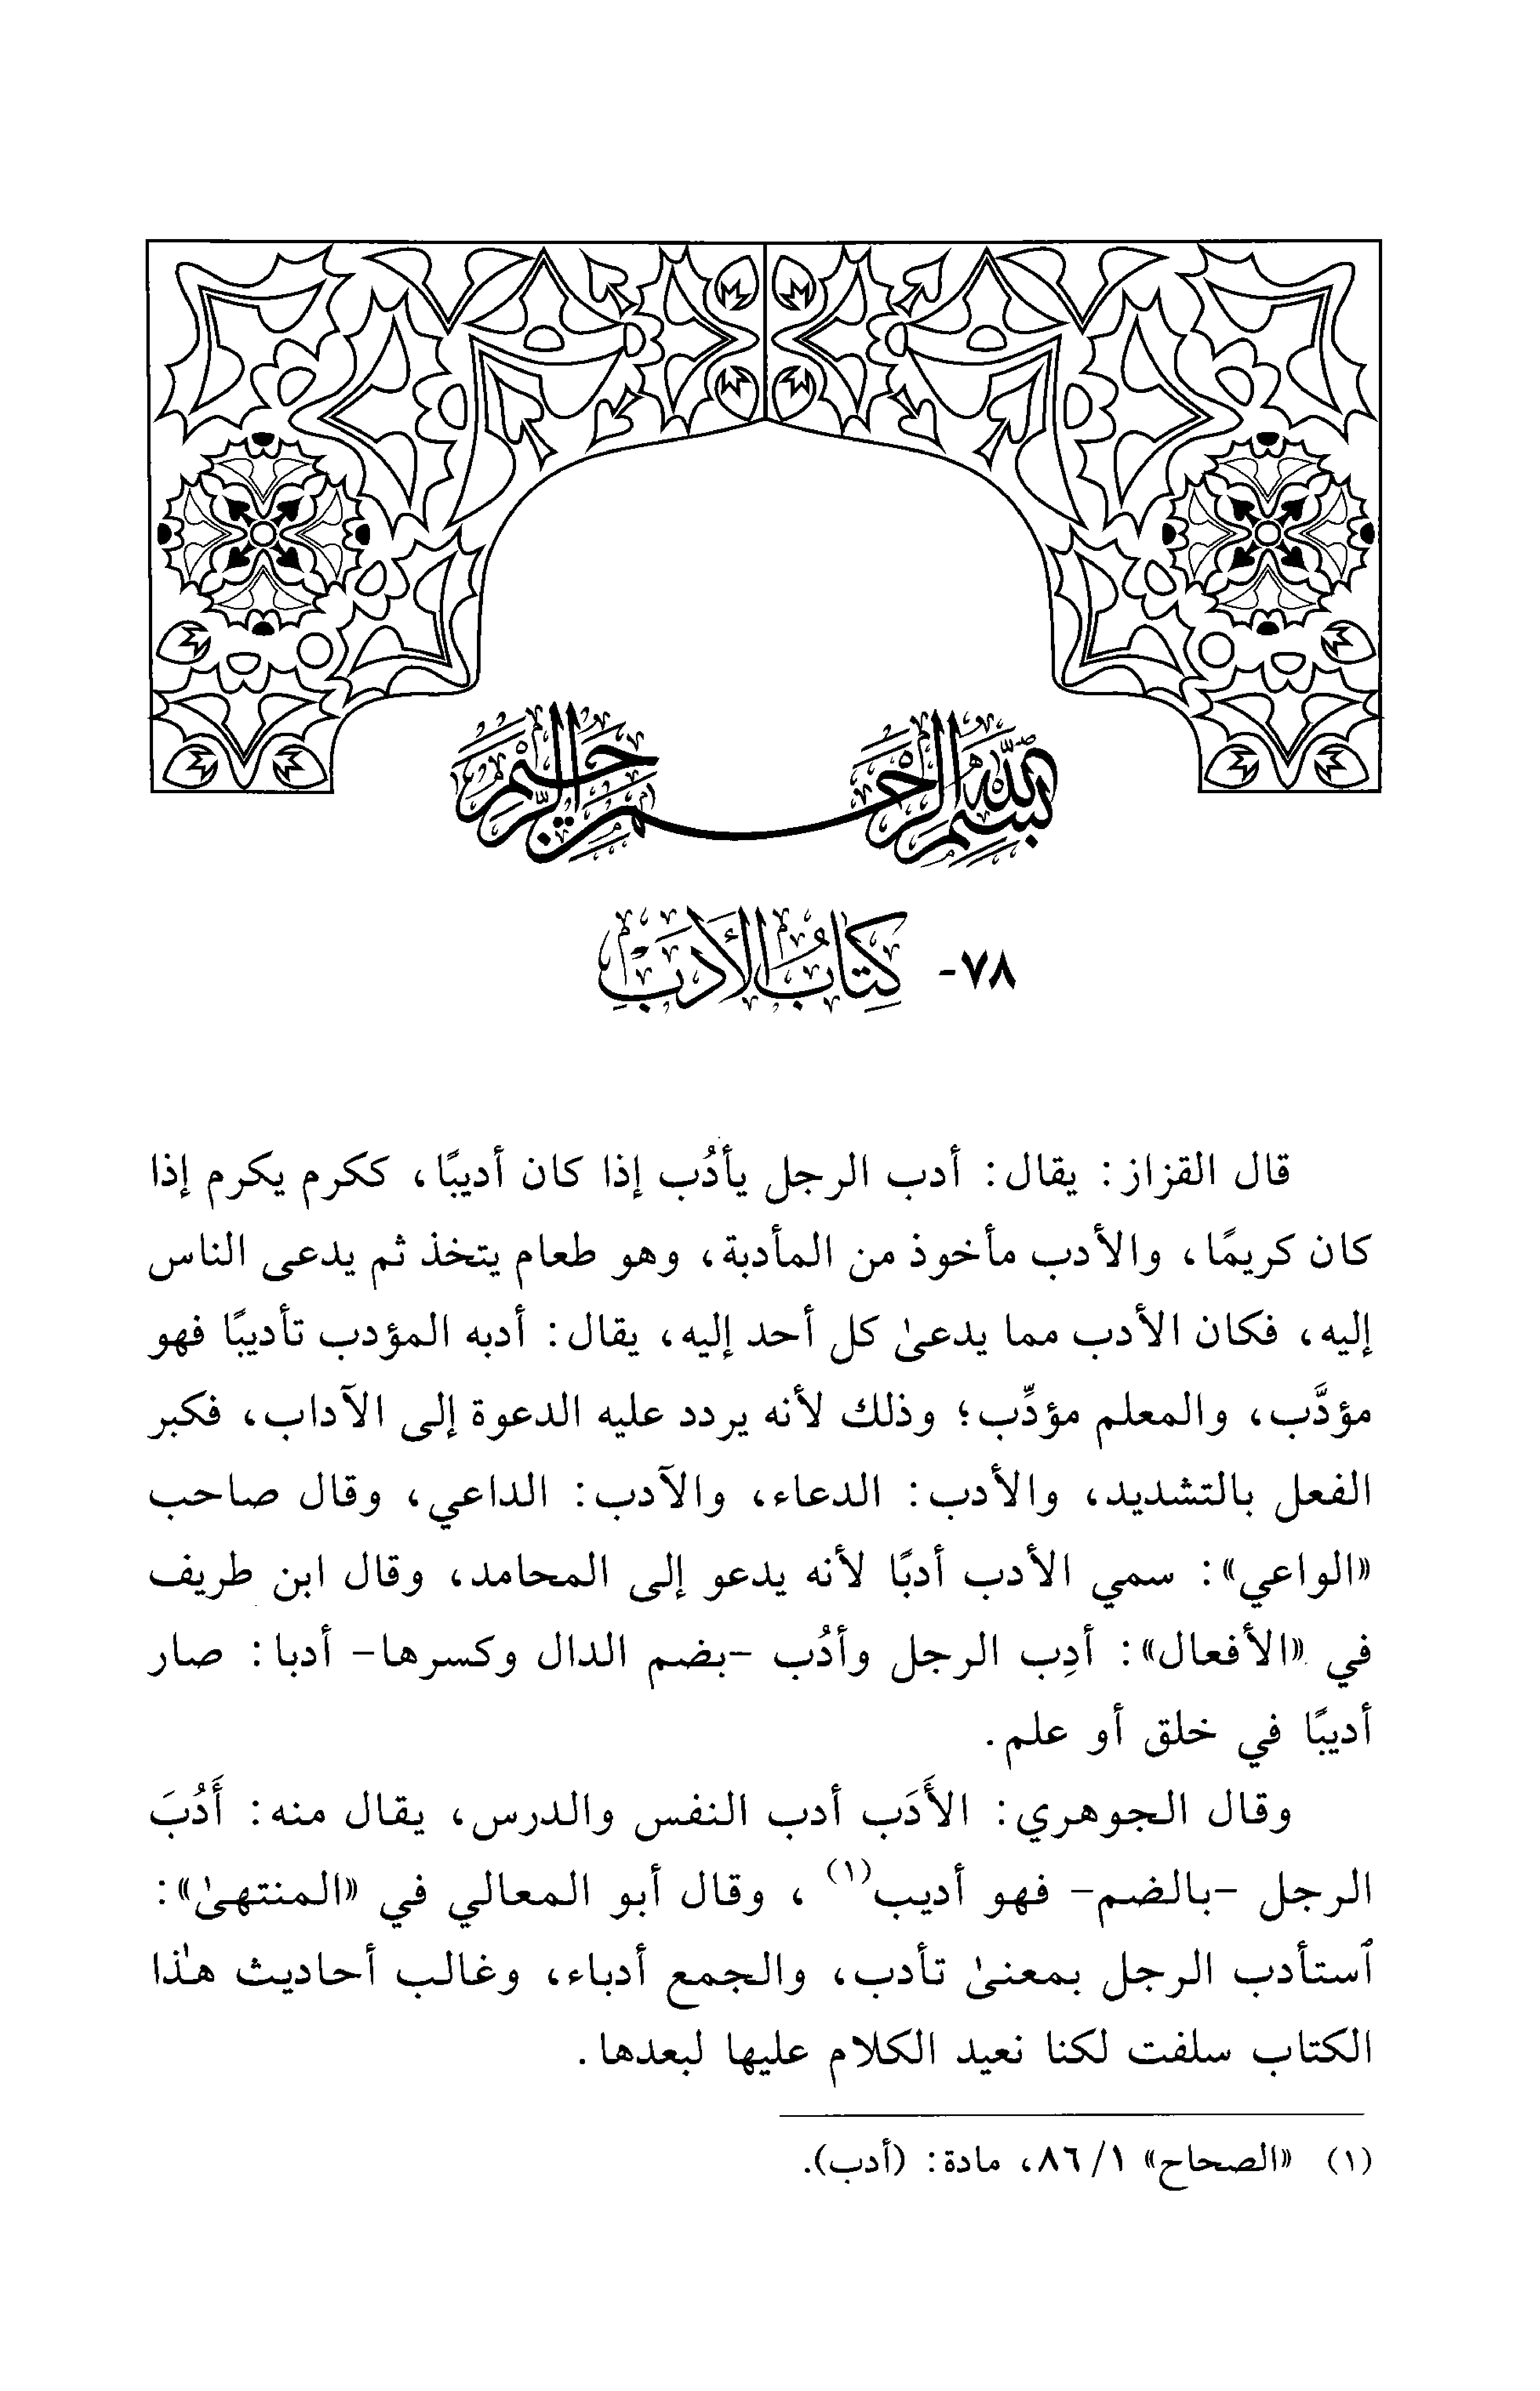 بسم الله الرحمن الرحيم
٧٨- كتاب الأدب
قال القزاز: يقال: أدب الرجل يأدُب إذا كان أديبًا، ككرم يكرم إذا
كان كريمًا، والأدب مأخوذ من المأدبة، وهو طعام يتخذ ثم يدعى الناس
إليه، فكان الأدب مما يدعىٰ كل أحد إليه، يقال: أدبه المؤدب تأديبًا فهو
مؤدَّب، والمعلم مؤدِّب؛ وذلك لأنه يردد عليه الدعوة إلى الآداب، فكبر
الفعل بالتشديد، والأدب: الدعاء، والآدب: الداعي، وقال صاحب
«الواعي»: سمي الأدب أدبًا لأنه يدعو إلى المحامد، وقال ابن طريف
في «الأفعال»: أدِب الرجل وأدُب -بضم الدال وكسرها- أدبا: صار
أديبًا في خلق أو علم.
وقال الجوهري: الأَدَب أدب النفس والدرس، يقال منه: أَدُبَ
الرجل -بالضم- فهو أديب(١)، وقال أبو المعالي في «المنتهىٰ»:
ٱستأدب الرجل بمعنىٰ تأدب، والجمع أدباء، وغالب أحاديث هذا
الكتاب سلفت لكنا نعيد الكلام عليها لبعدها.
(١) «الصحاح» ١/ ٨٦، مادة: (أدب).